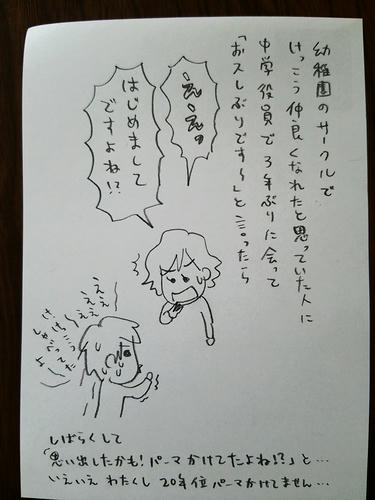 幼稚園のサークルで
けっこう仲良くなれたと思っていた人に
中学役員で3年ぶりに会って
「お久しぶりです〜」と言ったら
え、え、
はじめまして
ですよね!?
ええ
ええ
ええ
けっこう
しゃべってた
よー
しばらくして
「思い出したかも!パーマかけてたよね!?」と…
いえいえ わたくし 20年位パーマかけてません…